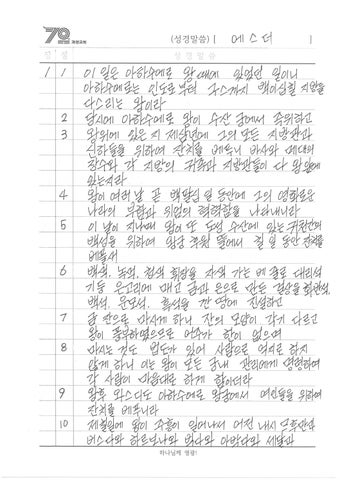 70 과천교회 (성경말씀) | 에스더 |
장 절 성경말씀
1 1 이 일은 아하수에로 왕 때에 있었던 일이니
아하수에로는 인도로부터 구스까지 백이십칠 지방을
다스리는 왕이라
2 당시에 아하수에로 왕이 수산 궁에서 즉위하고
3 왕위에 있은 지 제삼년에 그의 모든 지방관과
신하들을 위하여 잔치를 베푸니 바사와 메대의
장수와 각 지방의 귀족과 지방관들이 다 왕 앞에
있는지라
4 왕이 여러 날 곧 백팔십 일 동안에 그의 영화로운
나라의 부함과 위엄의 혁혁함을 나타내니라
5 이 날이 지나매 왕이 또 도성 수산에 있는 귀천간의
백성을 위하여 왕궁 후원 뜰에서 칠 일 동안 잔치를
베풀새
6 백색, 녹색, 청색 휘장을 자색 가는 베 줄로 대리석
기둥 은고리에 매고 금과 은으로 만든 걸상을 화반석,
백석, 운모석, 흑석을 깐 땅에 진설하고
7 금 잔으로 마시게 하니 잔의 모양이 각기 다르고
왕이 풍부하였으므로 어주가 한이 없으며
8 마시는 것도 법도가 있어 사람으로 억지로 하지
않게 하니 이는 왕이 모든 궁내 관리에게 명령하여
각 사람이 마음대로 하게 함이더라
9 왕후 와스디도 아하수에로 왕궁에서 여인들을 위하여
잔치를 베푸니라
10 제칠일에 왕이 주흥이 일어나서 어전 내시 므후만과
비스다와 하르보나와 빅다와 아박다와 세달과
하나님께 영광!